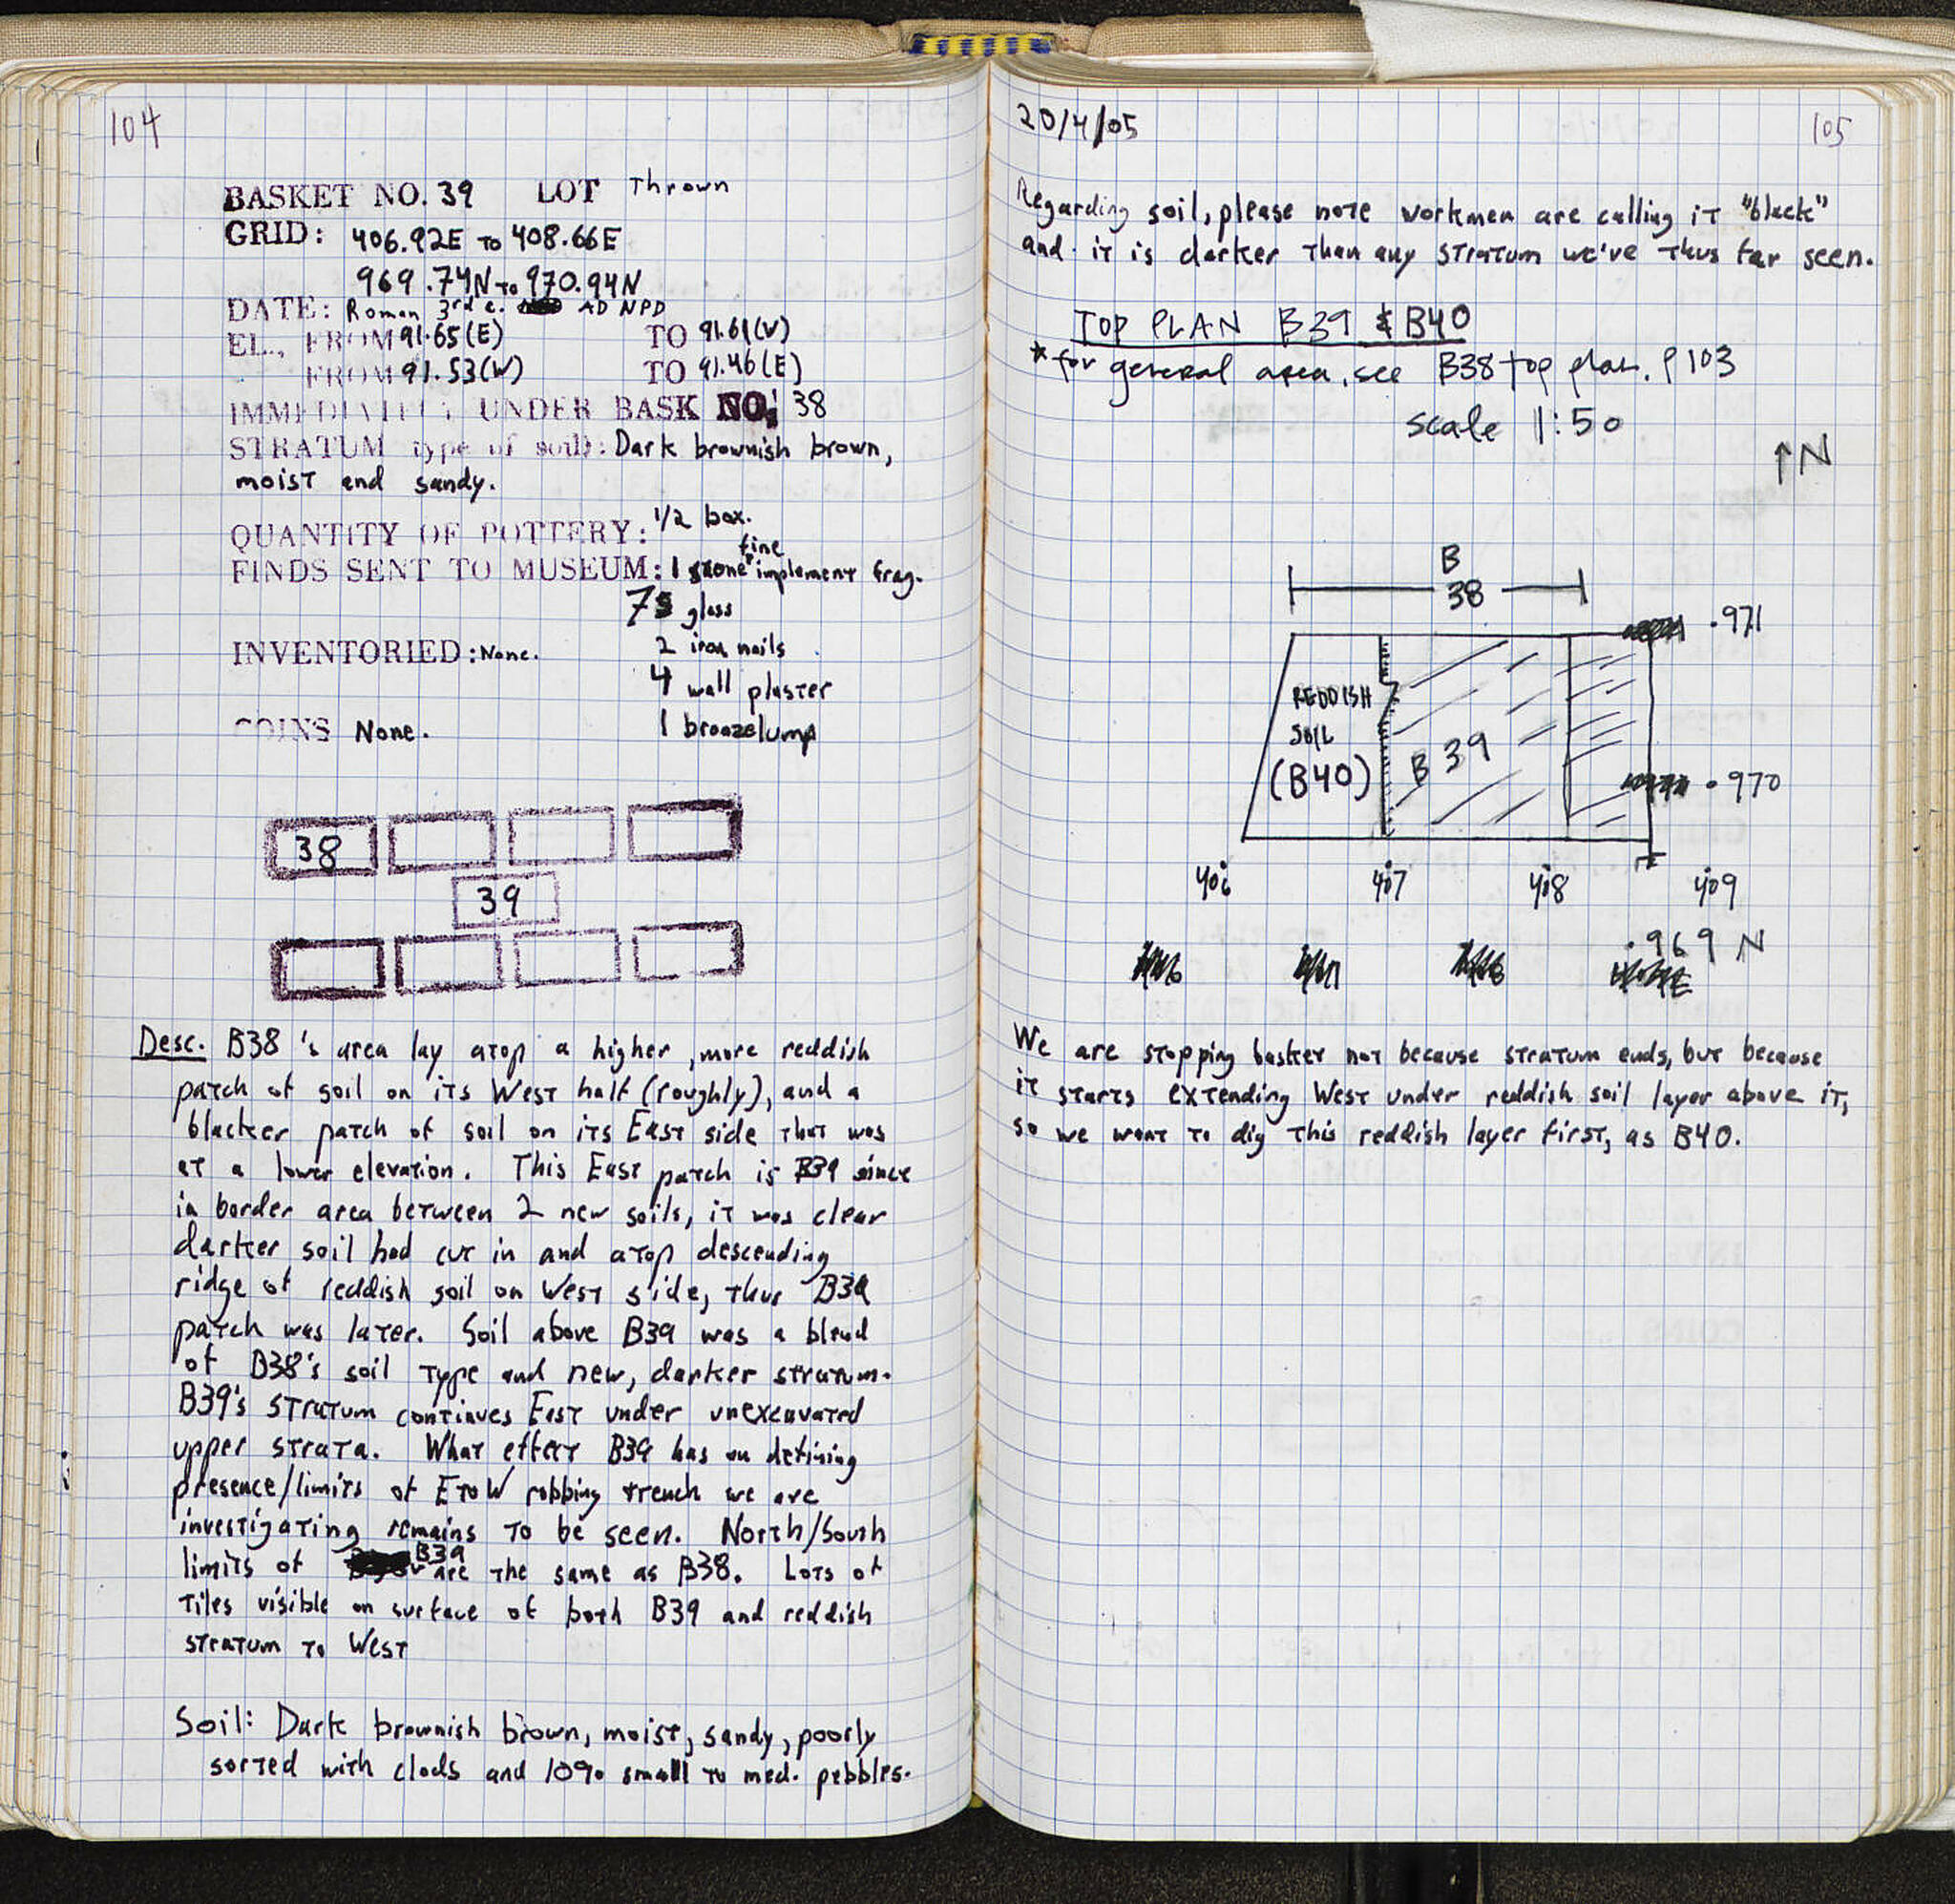 104
BASKET NO. 39 LOT Thrown
GRID: 406.92E TO 408.66E
969.74N TO 970.94N
DATE: Roman 3rd c. AD NPD
EL., FROM 91.65(E) TO 91.61(W)
FROM 91.53(W) TO 91.46(E)
IMMEDIATELY UNDER BASK NO: 38
STRATUM type of soil): Dark brownish brown,
moist and sandy.
QUANTITY OF POTTERY: 1/2 box.
fine
FINDS SENT TO MUSEUM: 1 stone implement frag.
7 glass
INVENTORIED: None. 2 iron nails
4 wall plaster
COINS None. 1 bronze lump
38
39
Desc. B38's area lay atop a higher, more reddish
patch of soil on its West half (roughly), and a
blacker patch of soil on its East side that was
at a lower elevation. This East patch is B39 since
in border area between 2 new soils, it was clear
darker soil had cut in and atop descending
ridge of reddish soil on West side, thus B39
patch was later. Soil above B39 was a blend
of B38's soil type and new, darker stratum.
B39's stratum continues East under unexcavated
upper strata. What effect B39 has on defining
presence/limits of E to W robbing trench we are
investigating remains to be seen. North/South
limits of B39 are the same as B38. Lots of
tiles visible on surface of both B39 and reddish
stratum to West
Soil: Dark brownish brown, moist, sandy, poorly
sorted with clods and 10% small to med. pebbles.
20/4/05
105
Regarding soil, please note workmen are calling it "black"
and it is darker than any stratum we've thus far seen.
TOP PLAN B39 & B40
* for general area, see B38 top plan. p 103
scale 1:50
↑N
B
38
.971
REDDISH
SOIL
(B40)
B 39
.970
406 407 408 409
.969 N
We are stopping basket not because stratum ends, but because
it starts extending West under reddish soil layer above it,
so we want to dig this reddish layer first, as B40.